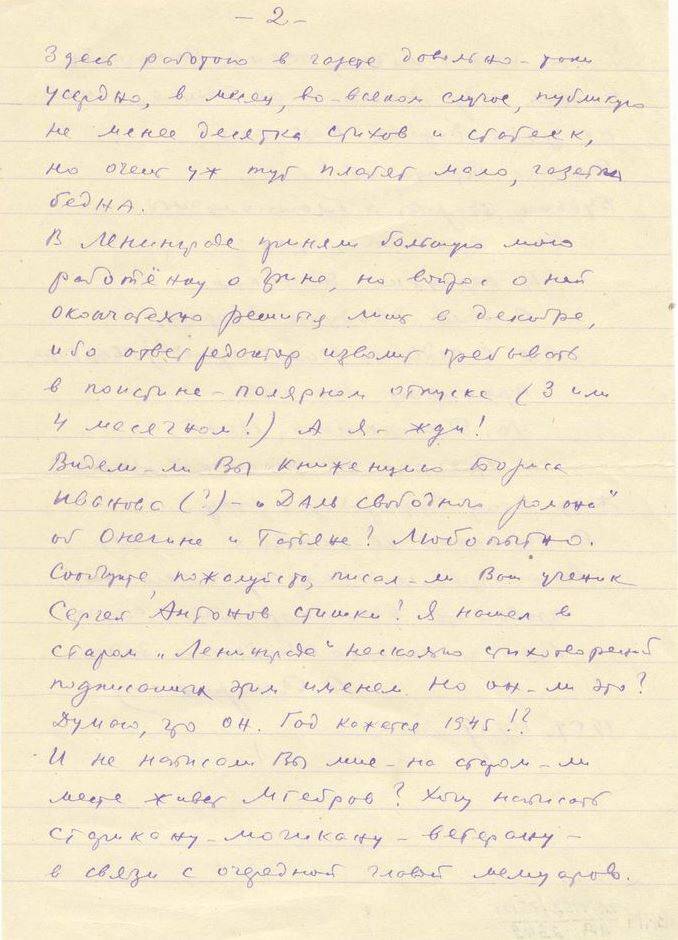 - 2 -
Здесь работаю в газете довольно-таки
усердно, в месяц, во-всяком случае, публикую
не менее десятка стихов и статеек,
но очень уж тут платят мало, газетка
бедна.
В Ленинграде приняли большую мою
работёнку о Грине, но вопрос о ней
окончательно решится лишь в декабре,
ибо ответ редактор изволит пребывать
в поистине-полярном отпуске (3 или
4 месячном!) А я - жди!
Видели-ли Вы книженцию Бориса
Иванова (?) - „Даль свободного романа"
об Онегине и Татьяне? Любопытно.
Сообщите, пожалуйста, писал-ли Ваш ученик
Сергей Антонов стишки? Я нашел в
старом „Ленинграде" несколько стихотворений
подписанных этим именем. Но он-ли это?
Думаю, что он. Год кажется 1945!?
И не написали Вы мне - на старом-ли
месте живет Мгебров? Хочу написать
старикану-могикану-ветерану -
в связи с очередной главой мемуаров.